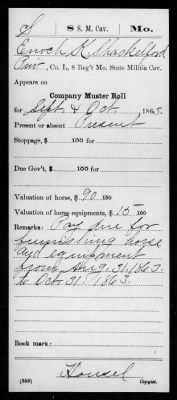 S 8 S. M. Cav. Mo.
Enoch K. Shackelford
Pvt, Co. L, 8 Reg't Mo. State Militia Cav.
Appears on
Company Muster Roll
for Sept. & Oct., 1863.
Present or absent Present
Stoppage, $ 100 for
Due Gov't, $ 100 for
Valuation of horse, $ 90 100
Valuation of horse equipments, $ 15 100
Remarks: Pay due for
furnishing horse
and equipment
from Aug. 31, 1863
to Oct. 31, 1863.
Book mark:
Housel
(358) Copyist.